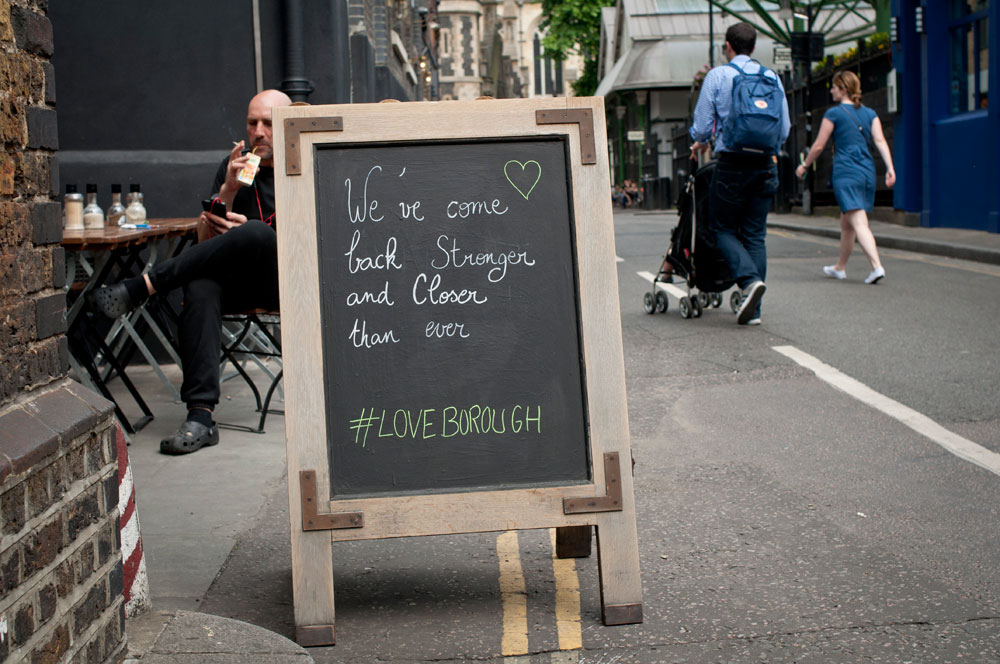 We've come
back Stronger
and Closer
than ever
#LOVEBOROUGH